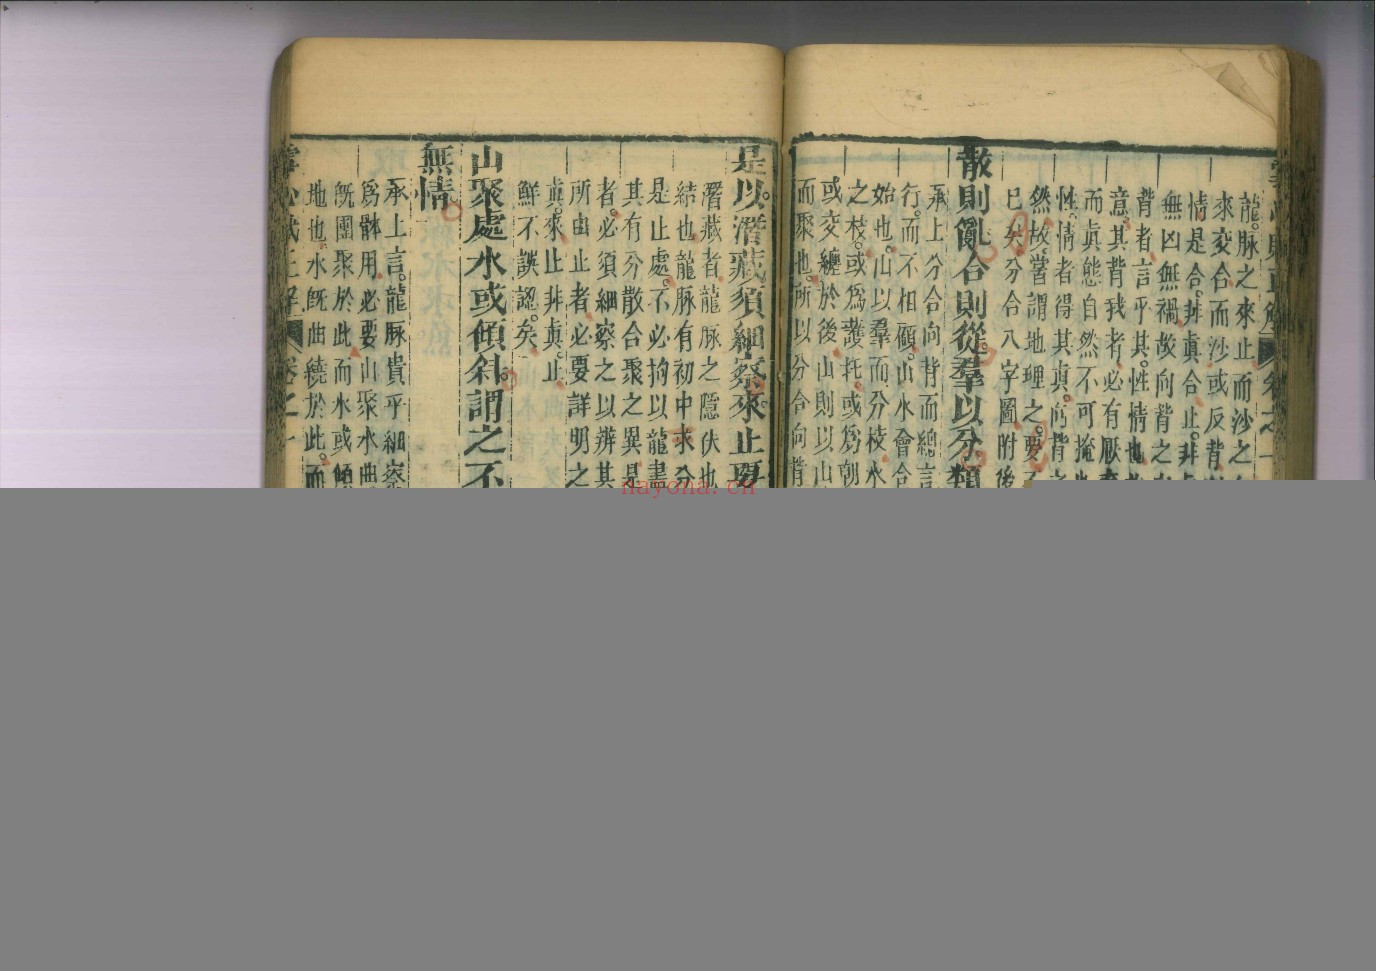 龍。脈之來止而沙之
來交合而沙或反背
情是合。非真合止。非
無凶無禍。故向背之
背者言乎其。性情也
意。其背我者必有厭
而真態自然不可掩
性情者得其真。向背之
然。故嘗謂地理之。要
已矣。分合八字圖附後
散則亂。合則從。羣以分類
承上分合向背而總言
行。而不相顧。山水會合
始也。山以羣而分枝水
之枝。或爲護托。或爲朝
或交纏於後山則以山
而聚也。所以分合向背
是以。潛藏須細察。來止要
潛藏者龍脈之隱伏也
結也。龍脈有初中末分
是止處。不必拘以龍盡
其有分散合聚之異是
者。必須細察之以辨其
所由止者必要詳明之
真。來止非真。止
鮮不誤認。矣
山聚處水或傾斜。謂之不
無情。
承上言。龍脈貴乎細察
爲體用必要山聚水曲
旣團聚於此而水或傾
地也。水旣曲繞於此。而
卷之一
nayona.cn